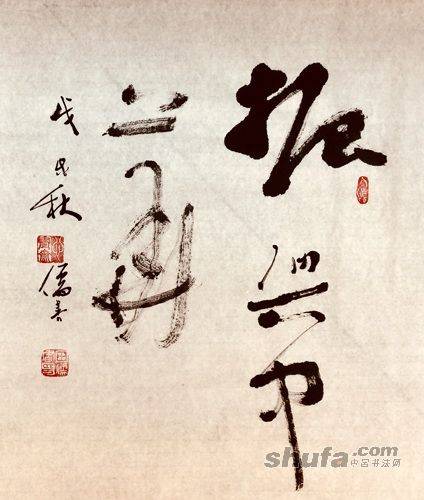 振興中
華
戊戌秋
shufa.com
中国书法网